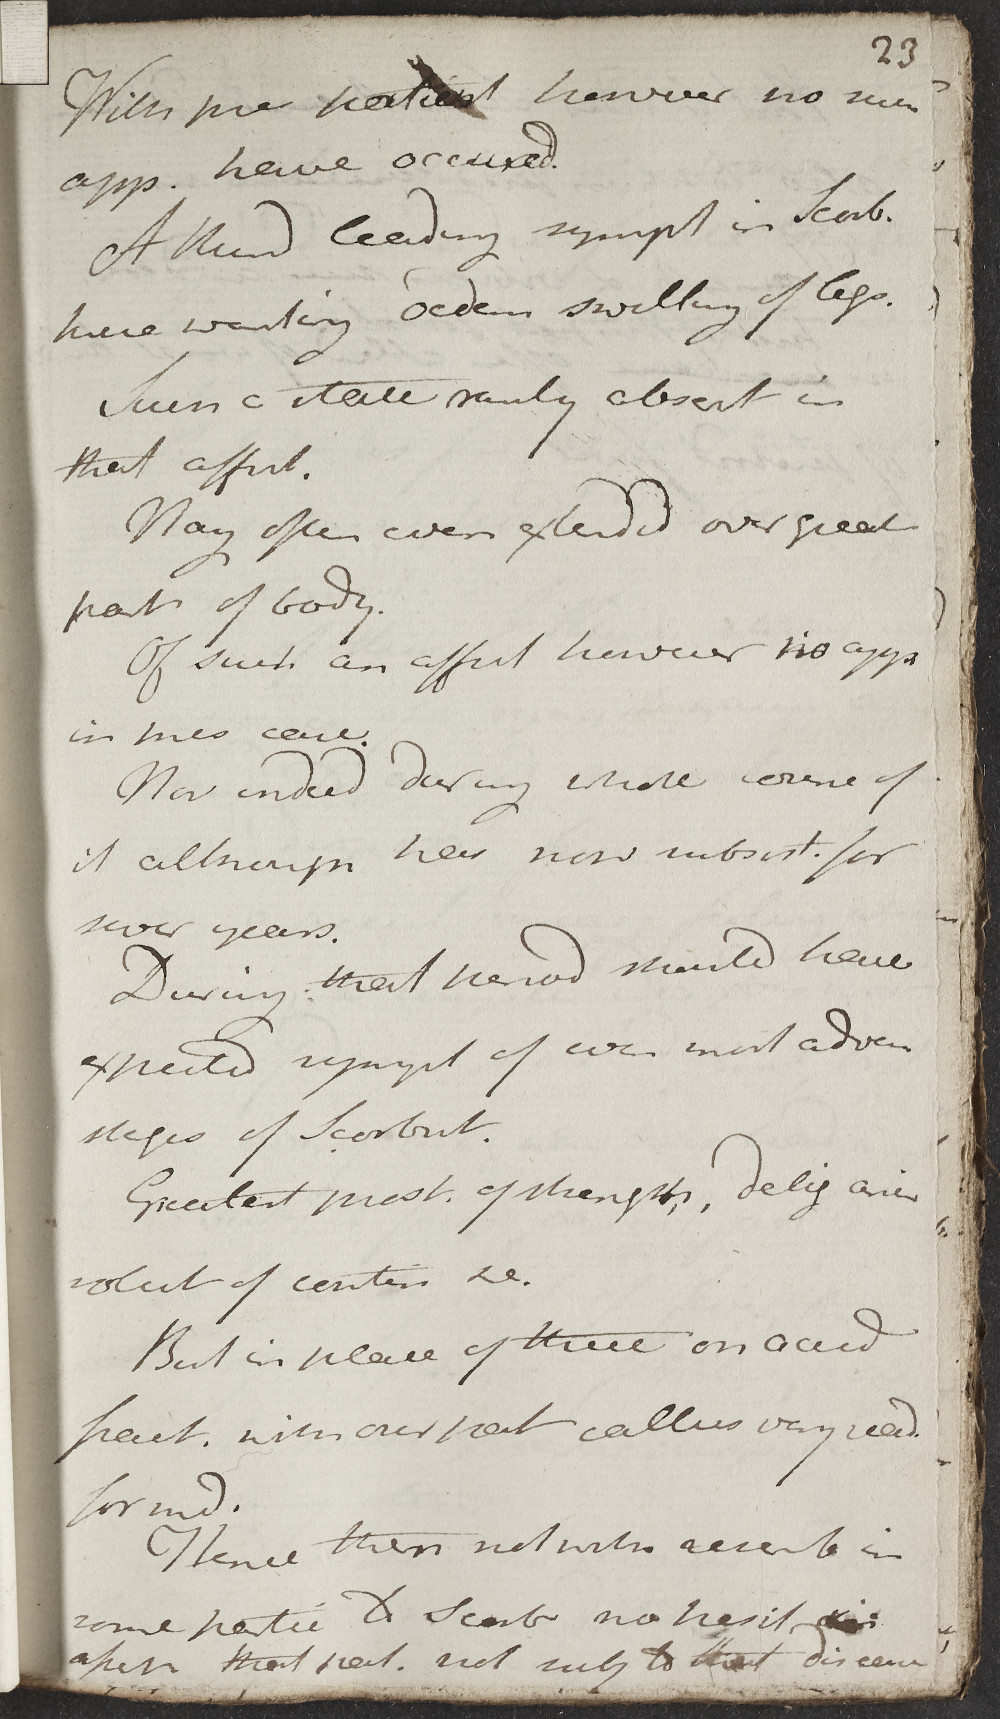 23
With pre patient however no such
app. have occured.
A third leading sympt in Scorb.
here wanting oedem swelling of legs.
Such a state rarely absent in
that affect.
Nay often even extended over great
part of body.
Of such an affect however no app
in pres case.
Nor indeed during whole course of
it although has now subsist. for
sever years.
During that period should have
expected sympt of even most advan
stages of Scorbut.
Greatest prost. of strength,
solut of contin &c.
But in place of these on accid
fract. with our pat callus very read.
formd.
Hence then notwith resemb in
some partic to Scorb no hesit
that pat. not subj to that disease